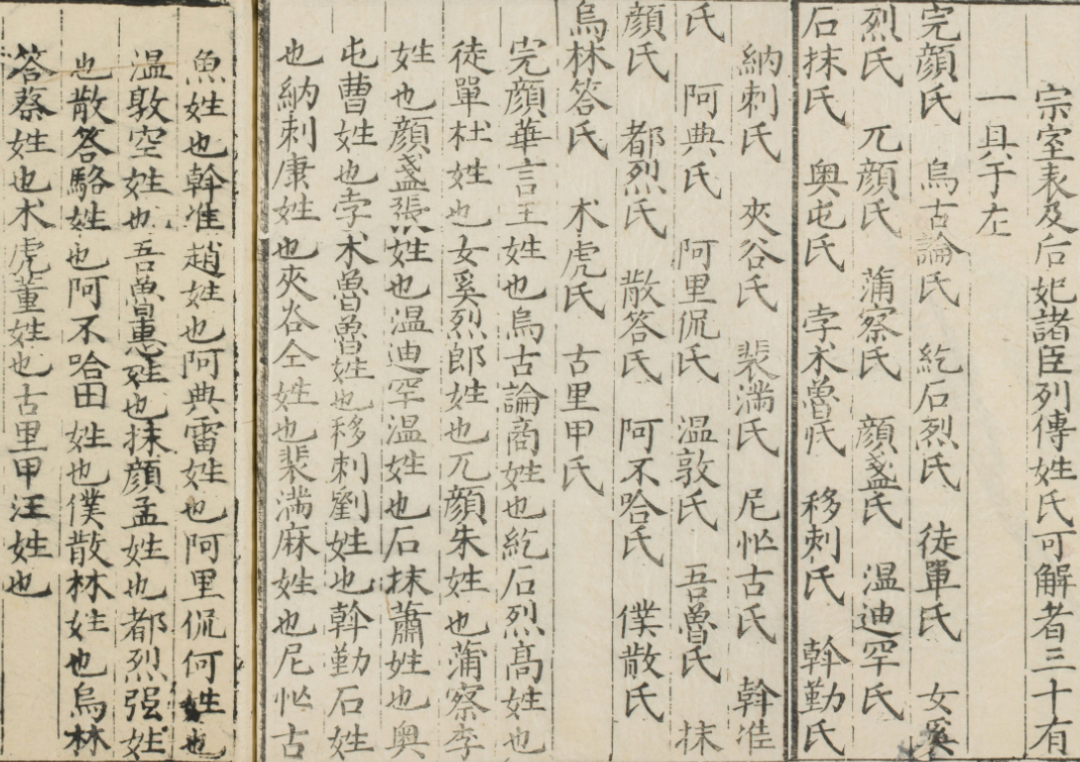 宗室表及后妃諸臣列傳姓氏可解者三十有
一具于左
完顏氏　烏古論氏　紇石烈氏　徒單氏　女奚
烈氏　兀顏氏　蒲察氏　顏盞氏　温迪罕氏
石抹氏　奥屯氏　孛术魯氏　移刺氏　斡勤氏
納刺氏　夾谷氏　裴満氏　尼忙古氏　斡准
氏　阿典氏　阿里侃氏　温敦氏　吾魯氏　抹
顏氏　都烈氏　散答氏　阿不哈氏　僕散氏
烏林答氏　术虎氏　古里甲氏
完顏華言王姓也烏古論商姓也紇石烈高姓也
徒單杜姓也女奚烈郎姓也兀顏朱姓也蒲察李
姓也顏盞張姓也温迪罕温姓也石抹蕭姓也奥
屯曹姓也孛术魯魯姓也移刺劉姓也斡勤石姓
也納刺康姓也夾谷仝姓也裴満麻姓也尼忙古
魚姓也斡准趙姓也阿典雷姓也阿里侃何姓也
温敦空姓也吾魯惠姓也抹顏孟姓也都烈强姓
也散答駱姓也阿不哈田姓也僕散林姓也烏林
答蔡姓也术虎董姓也古里甲汪姓也